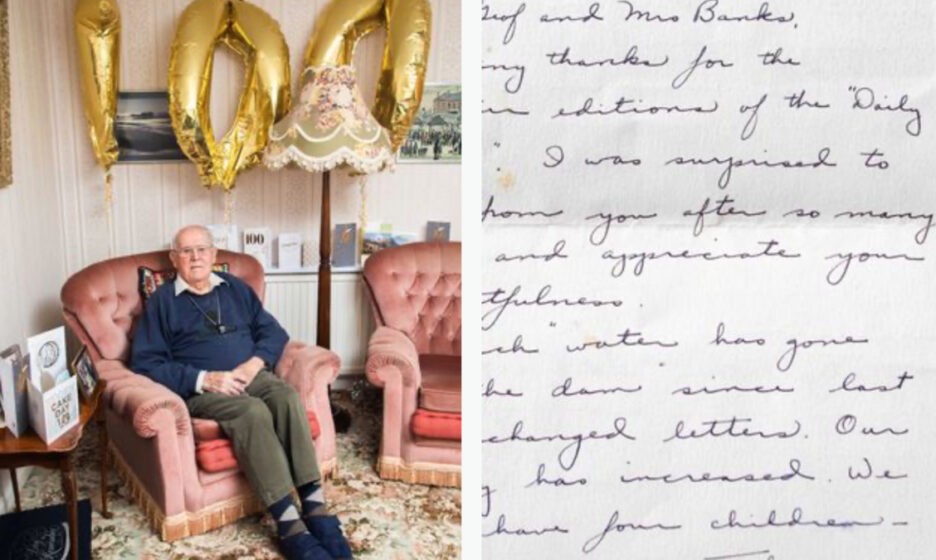 100
100
CAKE
DAY
and Mrs Banks,
thanks for the
editions of the "Daily
". I was surprised to
you after so many
and appreciate your
tfulness.
"water has gone
he dam" since last
changed letters. Our
has increased. We
have four children –